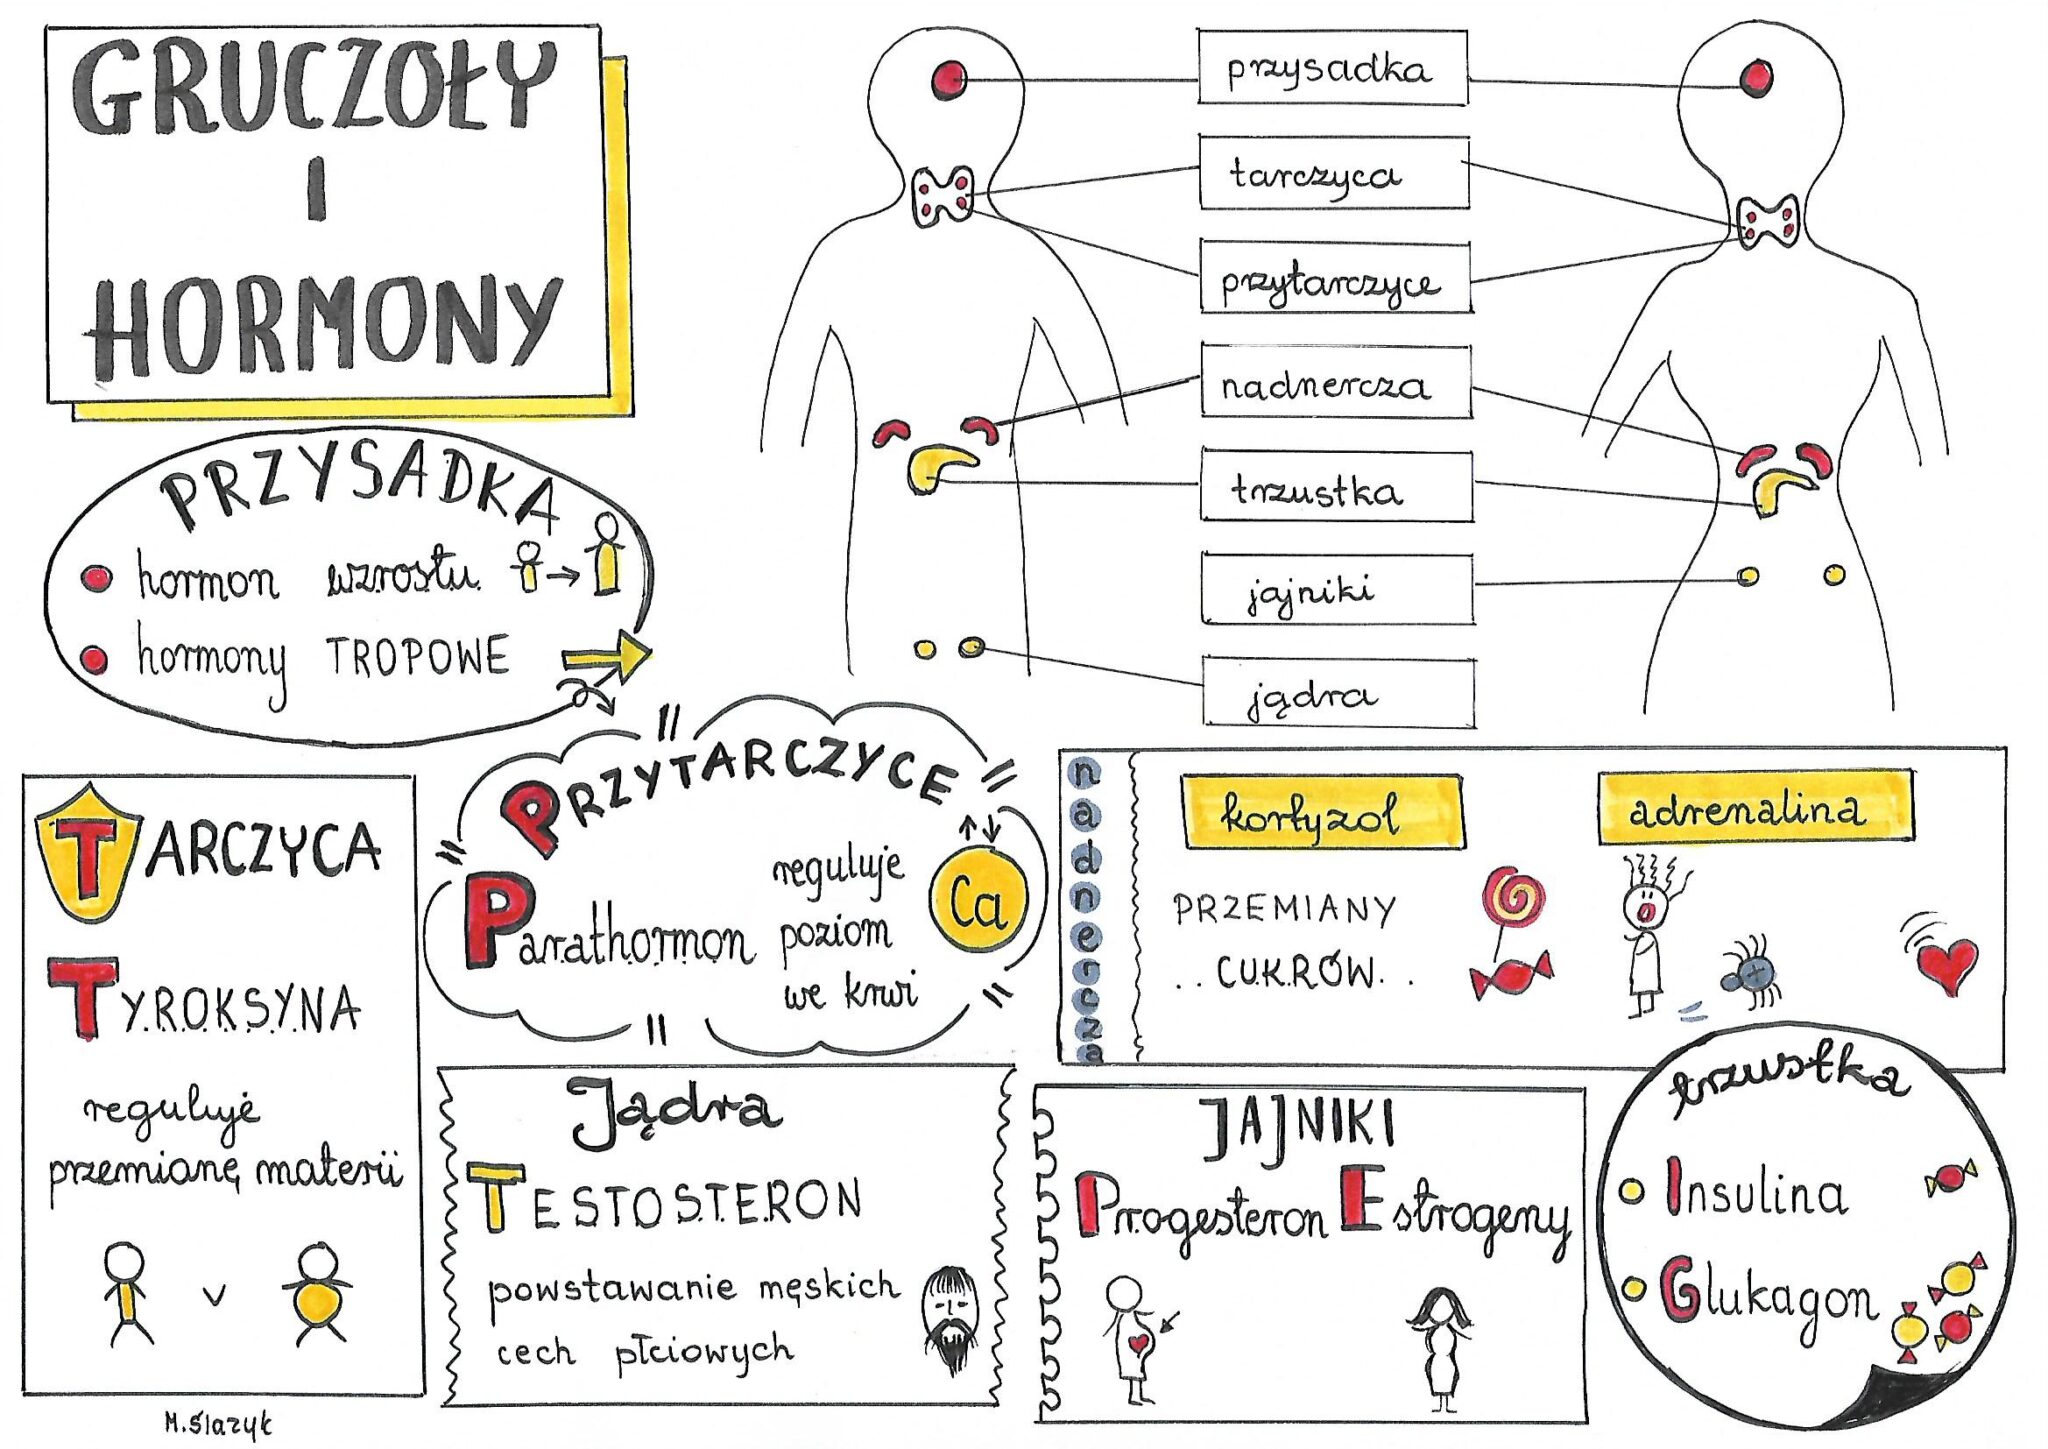 GRUCZOŁY
I
HORMONY
przysadka
tarczyca
przytarczyce
nadnercza
trzustka
jajniki
jądra
PRZYSADKA
hormon wzrostu
hormony TROPOWE
TARCZYCA
TYROKSYNA
reguluje
przemianę materii
v
PRZYTARCZYCE
Parathormon
reguluje
poziom
we krwi
Ca
nadnercza
kortyzol
adrenalina
PRZEMIANY
..CUKRÓW..
Jądra
TESTOSTERON
powstawanie męskich
cech płciowych
JAJNIKI
Progesteron Estrogeny
trzustka
Insulina
Glukagon
M.Ślazyk